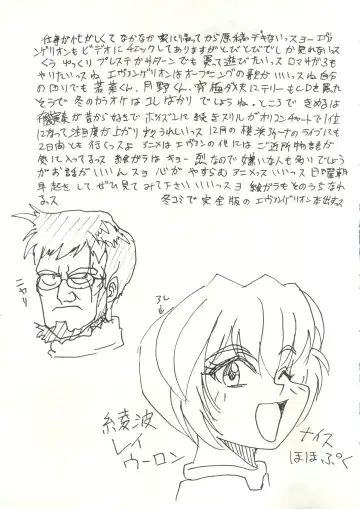 仕事が忙がしくてなかなか家に帰ってから原稿デキないっスョー エヴ
ンゲリオンもビデオにチェックしてありますがとびとびでしか見れないっス
くうゥ ゆっくりプレステかサターン でも買って遊びたいっス ロマサガ3も
やりたいっスね エヴァンゲリオンはオープニングの歌がいいっスね 自分
の回りでも 若菜くん、月野くん、
そうで 冬のカラオケはコレばかり でしょうね、ところで
が昔から好きで
になって注目度が上がり うれしいっス 12月の横浜アリーナのライブにも
2日間とも行くっスよ アニメはエヴァンの他にはご近所物語が
気に入ってるっス 絵ガラはチョー 烈なので嫌いな人も多いでしょう
がお話がいいんスョ 心がやすらぐアニメっス いいっス 日曜朝
早起きしてぜひ見てみて下さい いいっスョ 絵ガラもそのうちなれ
まっス 冬コミで完全版のエヴァンゲリオン本出すっス
ニヤリ
アレ
綾波
レイ
ウーロン
ナイス
ほほぷく